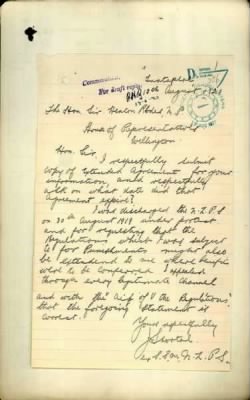 For draft reply
August
The Hon. Sir Heaton Rhodes M.P.
House of Representatives
Wellington
Hon. Sir
I respectfully submit
copy of Extended Agreement for your
information, and respectfully
ask on what date did that
agreement expire?
I was discharged the N.Z.P.S.
on 30th August 1919 under protest
and for requesting that the
Regulations which I was subject
to for Punishments might also
be extended to me where benefits
would be conferred. I appealed
through every legitimate channel
and with the aid of "the Regulations"
that the foregoing statement is
correct.
Yours respectfully
N.Z.P.S.